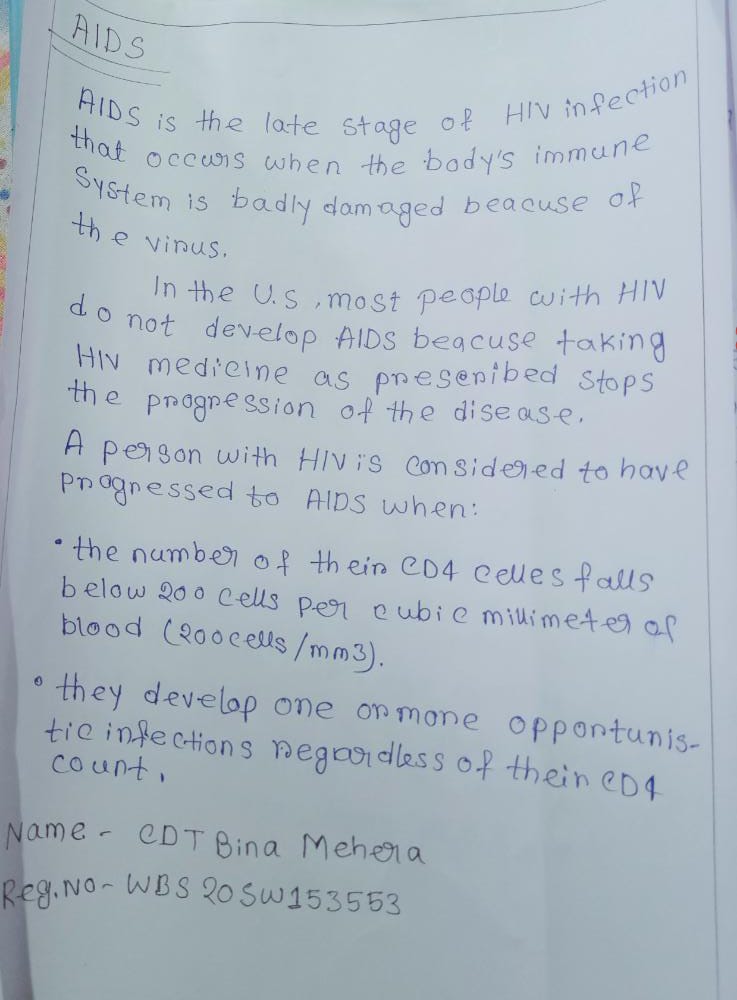 AIDS
AIDS is the late stage of HIV infection
that occurs when the body's immune
System is badly damaged beacuse of
the virus.
In the U.S, most people with HIV
do not develop AIDS beacuse taking
HIV medicine as prescribed stops
the progression of the disease.
A person with HIV is considered to have
progressed to AIDS when:
• the number of their CD4 celles falls
below 200 cells per cubic millimeter of
blood (200cells/mm3).
• they develop one or more opportunis-
tic infections regardless of their CD4
count.
Name - CDT Bina Mehera
Reg.No- WBS20SW153553